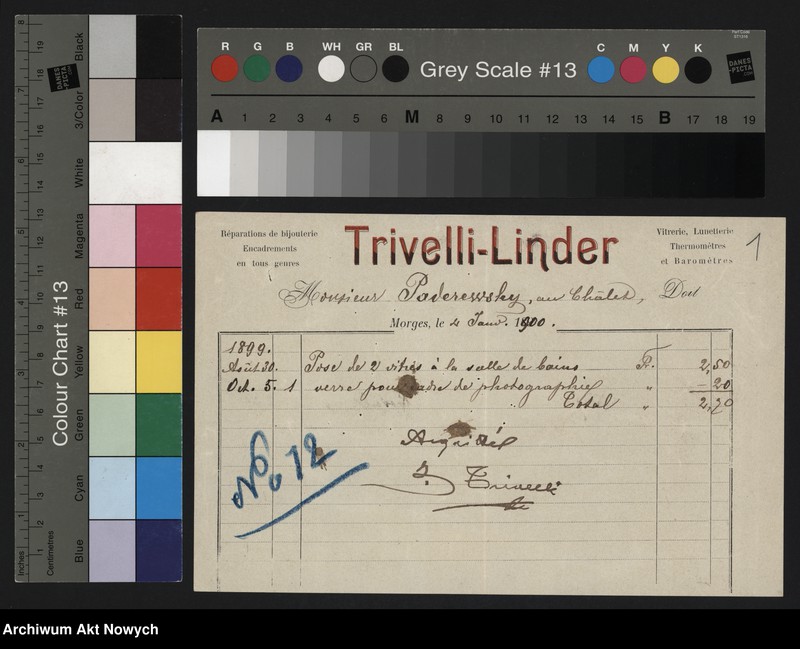 R G B WH GR BL Grey Scale #13 C M Y K
DANES
-PICTA
.COM
A 1 2 3 4 5 6 M 8 9 10 11 12 13 14 15 B 17 18 19
Colour Chart #13
Black
3/Color
White
Magenta
Red
Yellow
Green
Cyan
Blue
Inches
Centimetres
Réparations de bijouterie
Encadrements
en tous genres
Trivelli-Linder
Vitrerie, Lunetterie
Thermomètres
et Baromètres
1
Monsieur Paderewsky, au Châlet, Doit
Morges, le 4 Janv. 1900.
1899.
Août 30. Pose de 2 vitres à la salle de bains Fr. 2,50
Oct. 5. 1 verre pour cadre de photographie " - 20
Total " 2,70
Acquitté
J. Trivelli
No 12
Archiwum Akt Nowych